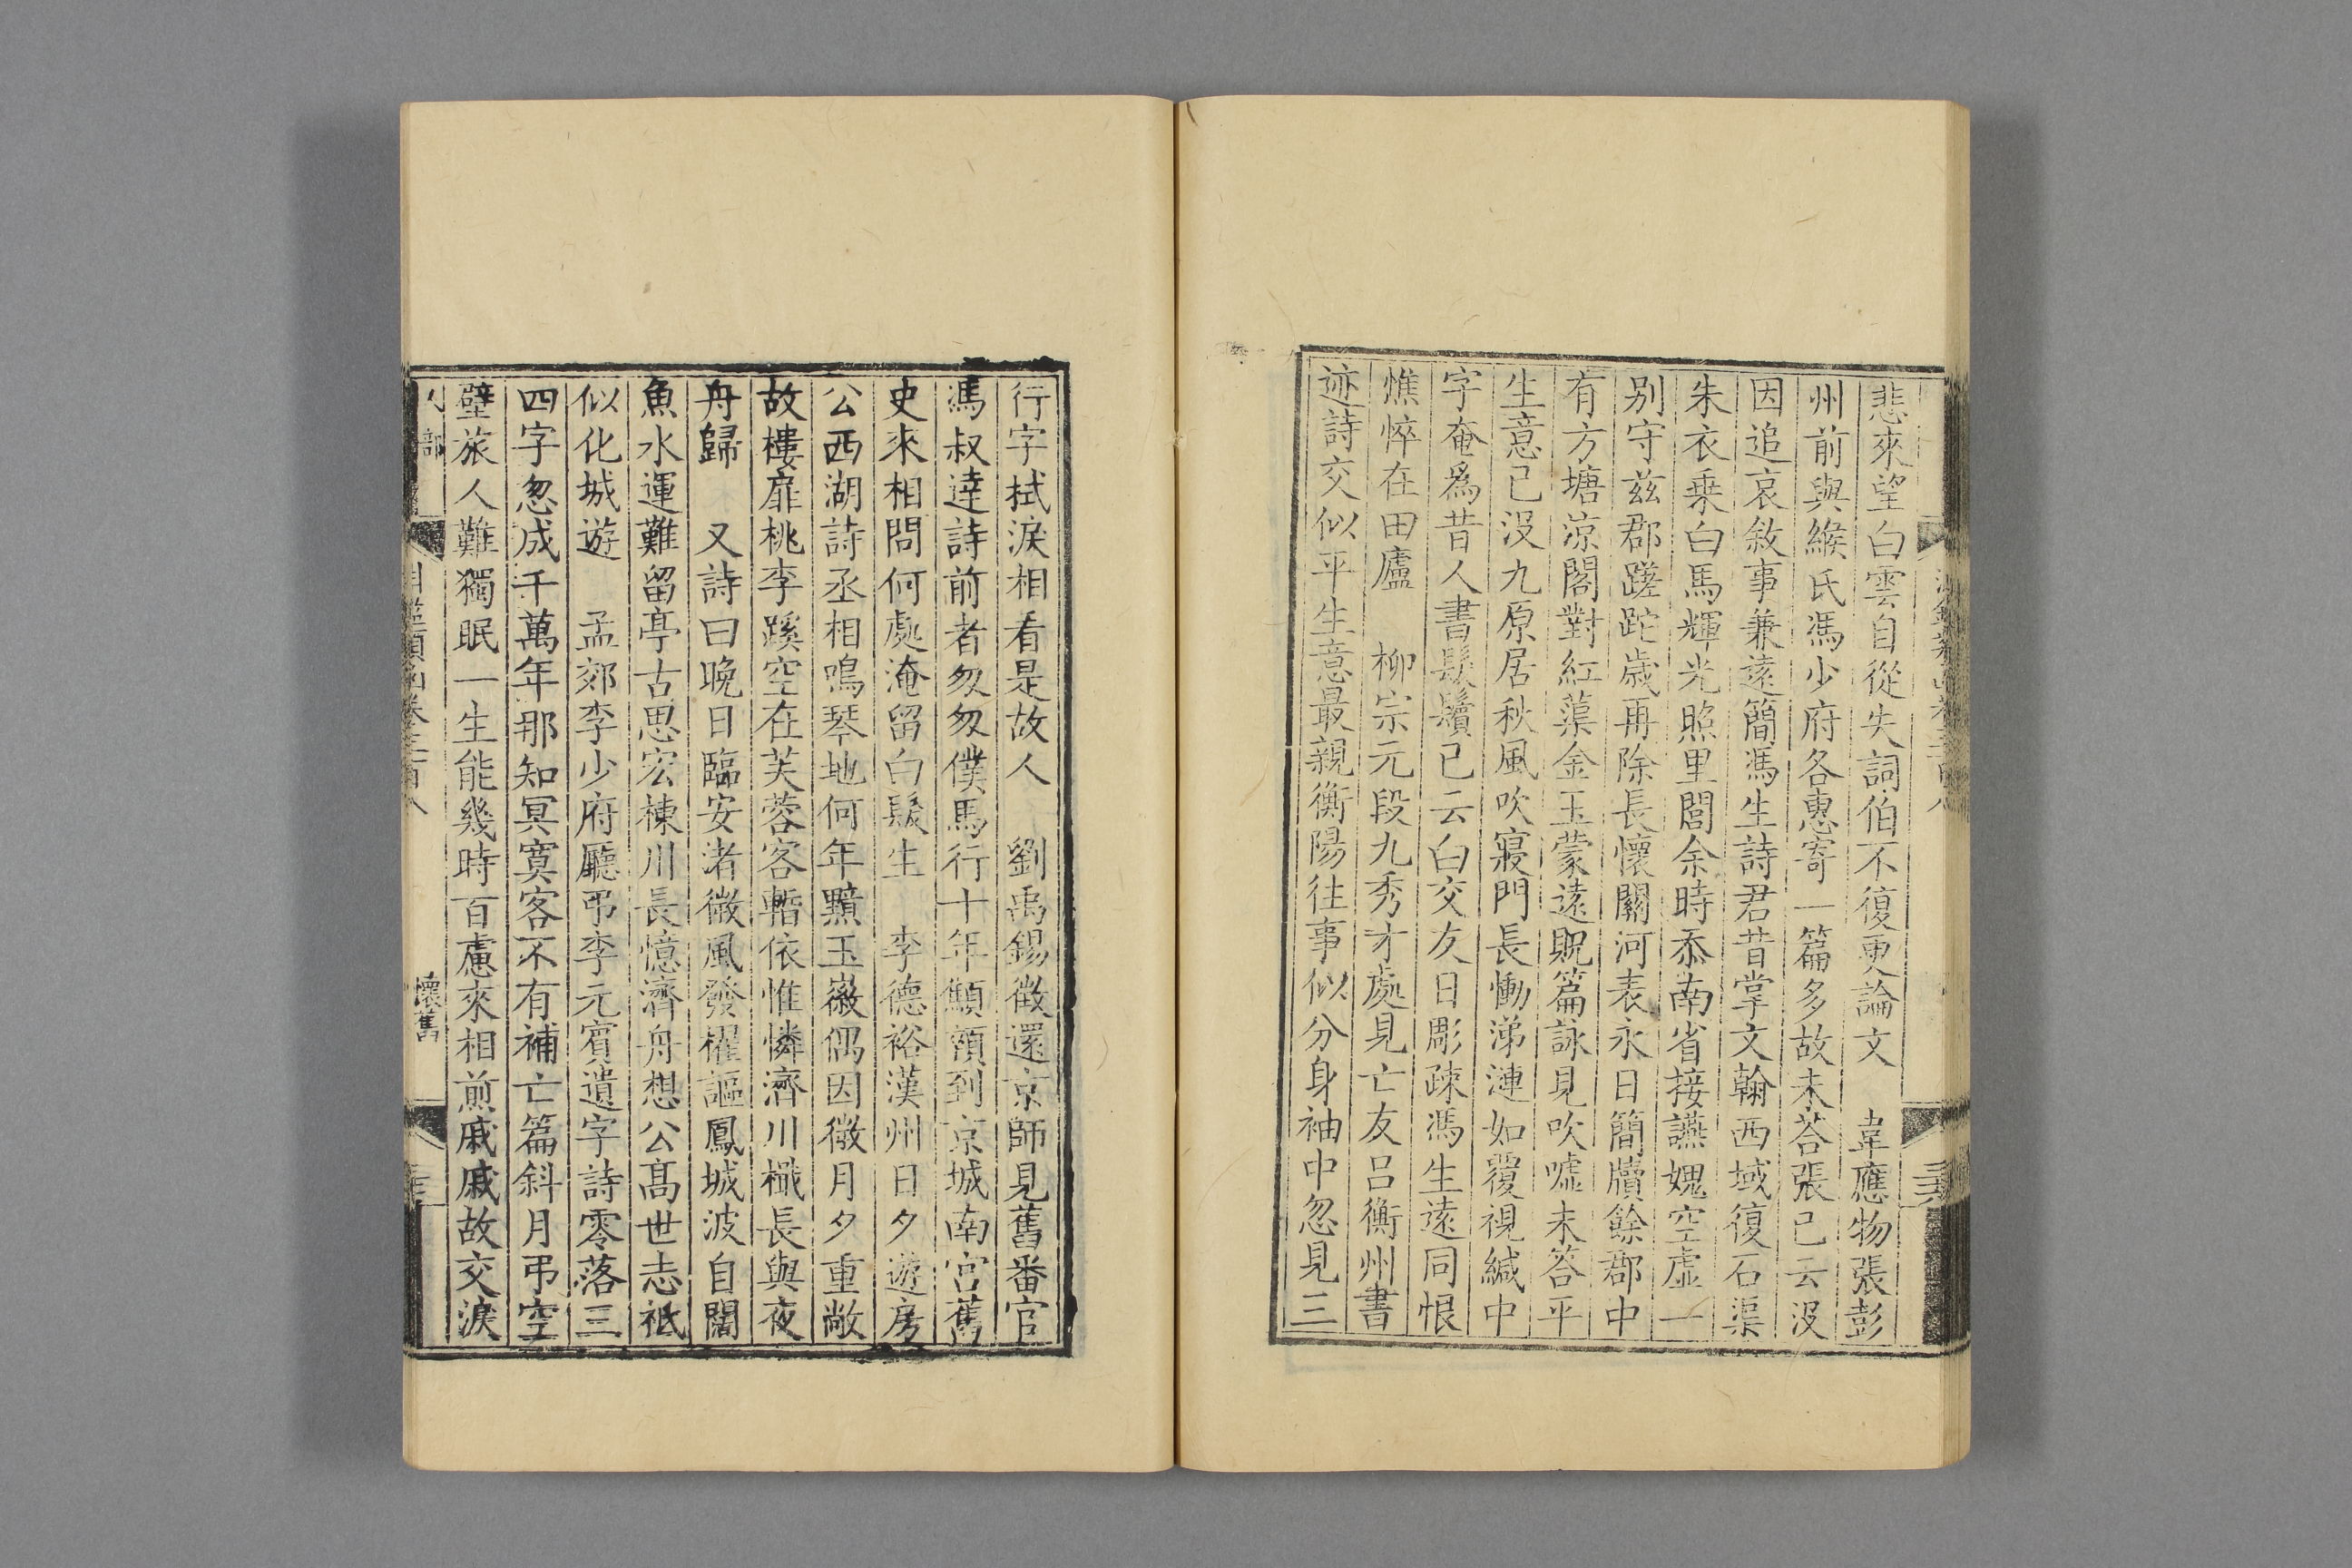 悲來望白雲自從失詞伯不復更論文　韋應物張彭
州前與緱氏馮少府各惠寄一篇多故未荅張已云沒
因追哀敘事兼遠簡馮生詩君昔掌文翰西域復石渠
朱衣乗白馬輝光照里閭余時忝南省接讌媿空虛一
别守兹郡蹉跎歳再除長懷關河表永日簡牘餘郡中
有方塘凉閣對紅蕖金玉蒙遠貺篇詠見吹噓未答平
生意已沒九原居秋風吹寢門長慟涕漣如覆視緘中
字奄爲昔人書髮鬢已云白交友日彫疎馮生遠同恨
憔悴在田廬　柳宗元段九秀才處見亡友呂衡州書
迹詩交似平生意最親衡陽往事似分身袖中忽見三
行字拭淚相看是故人　劉禹錫徴還京師見舊番官
馮叔達詩前者匆匆僕馬行十年顦顇到京城南宮舊
史來相問何處淹留白髮生　李德裕漢州日夕遊房
公西湖詩丞相鳴琴地何年黯玉徽偶因微月夕重敞
故樓扉桃李蹊空在芙蓉客暫依惟憐濟川檝長與夜
舟歸　又詩曰晩日臨安渚微風發櫂謳鳳城波自闊
魚水運難留亭古思宏棟川長憶濟舟想公髙世志祗
似化城遊　孟郊李少府廳弔李元賓遺字詩零落三
四字忽成千萬年那知冥寞客不有補亡篇斜月弔空
壁旅人難獨眠一生能幾時百慮來相煎戚戚故交淚
部
懷舊